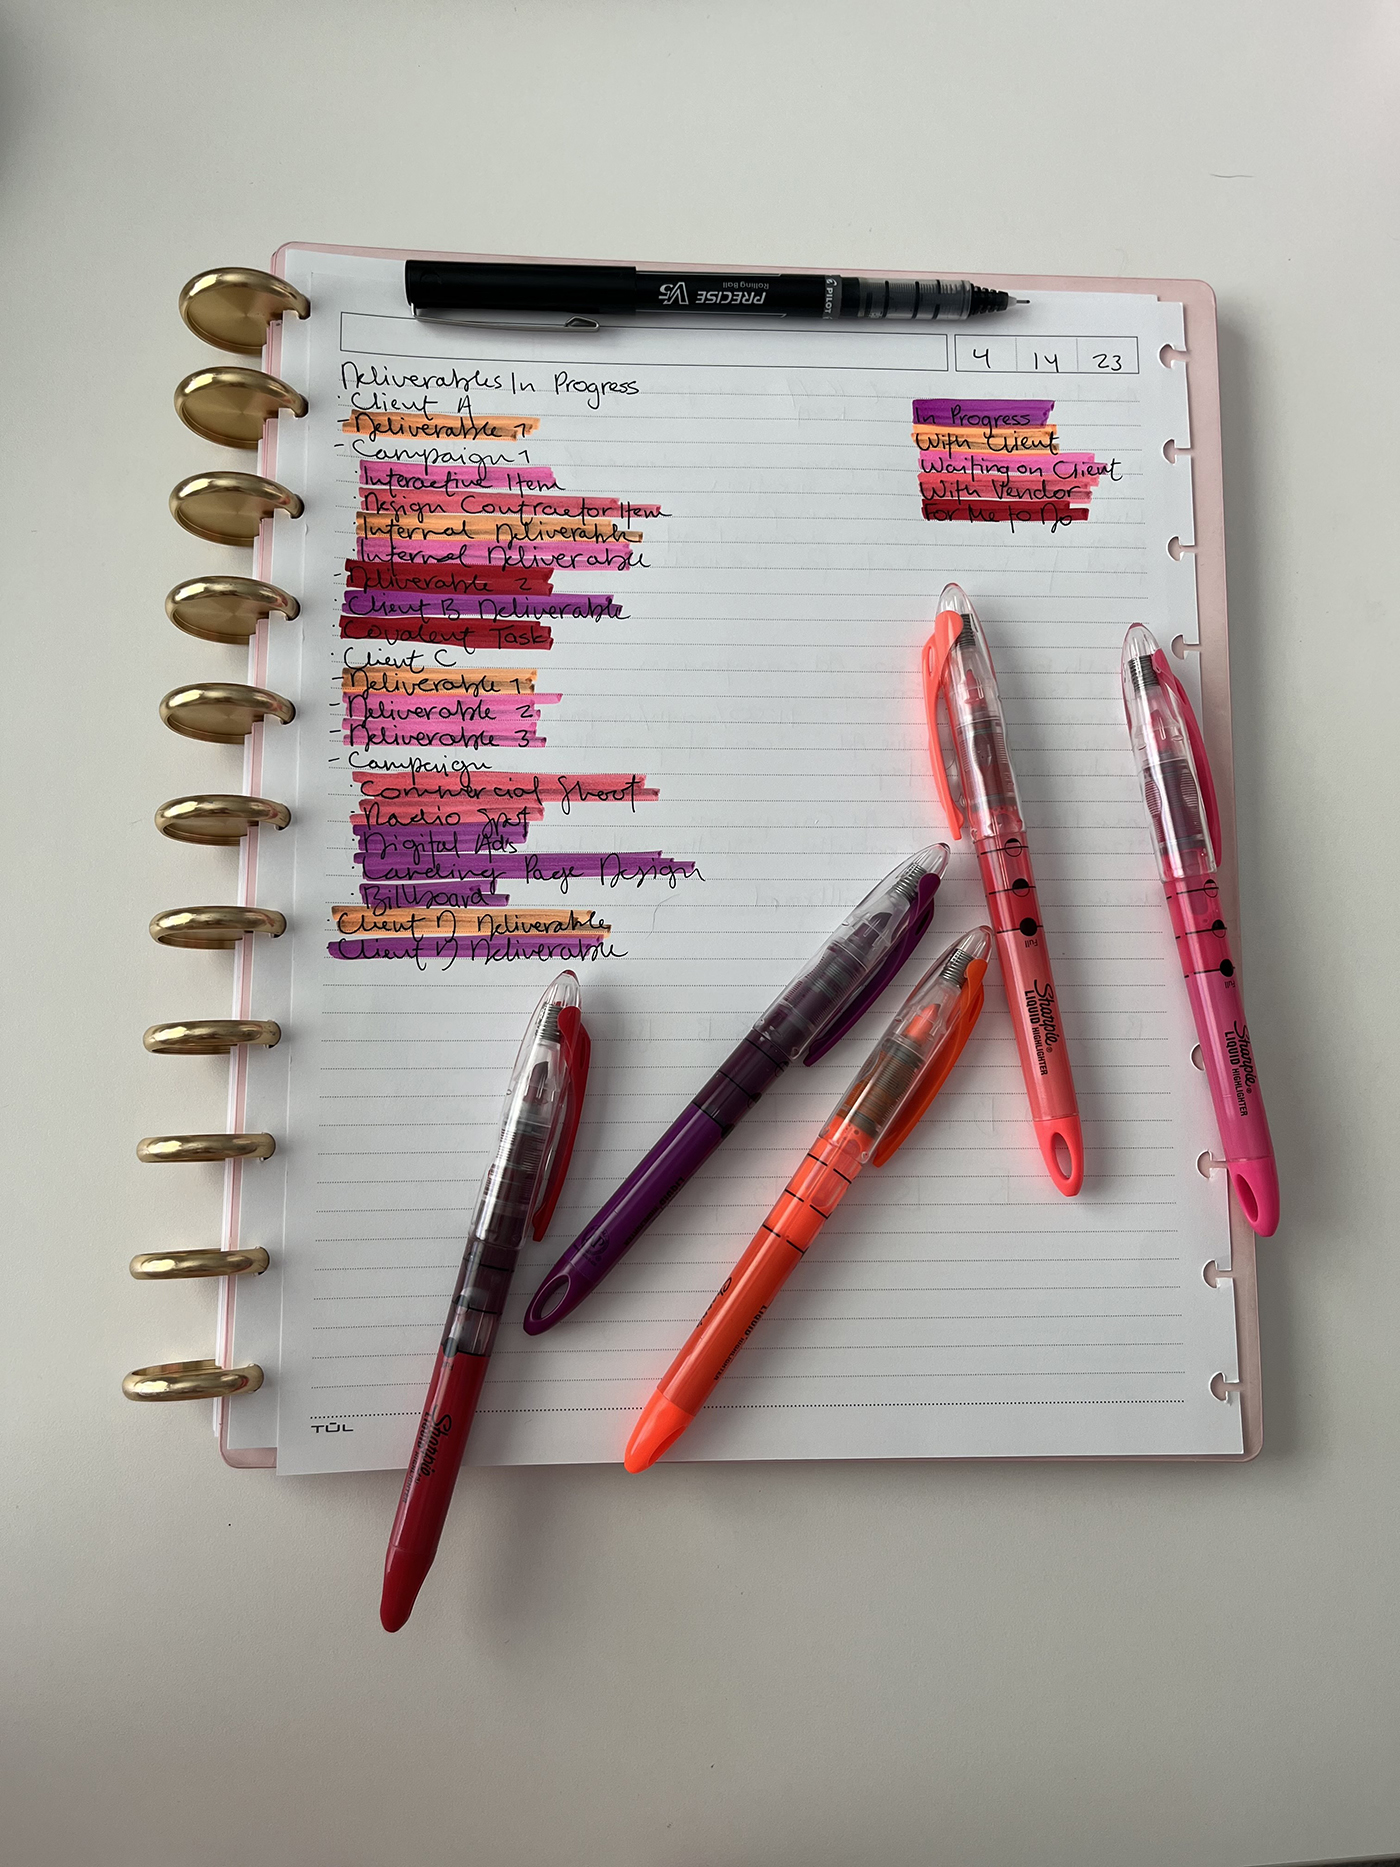 PRECISE V5
Rolling Ball
PILOT
4 14 23
Deliverables In Progress
· Client A
- Deliverable 1
- Campaign 1
· Interactive Item
· Design Contractor Item
· Internal Deliverable
· Internal Deliverable
- Deliverable 2
· Client B Deliverable
· Covalent Task
· Client C
- Deliverable 1
- Deliverable 2
- Deliverable 3
- Campaign
· Commercial Shoot
· Radio Spot
· Digital Ads
· Landing Page Design
· Billboard
· Client D Deliverable
· Client D Deliverable
In Progress
With Client
Waiting on Client
With Vendor
For Me to Do
Full
Sharpie®
LIQUID HIGHLIGHTER
Full
Sharpie®
LIQUID HIGHLIGHTER
LIQUID
LIQUID HIGHLIGHTER
Sharpie
TUL